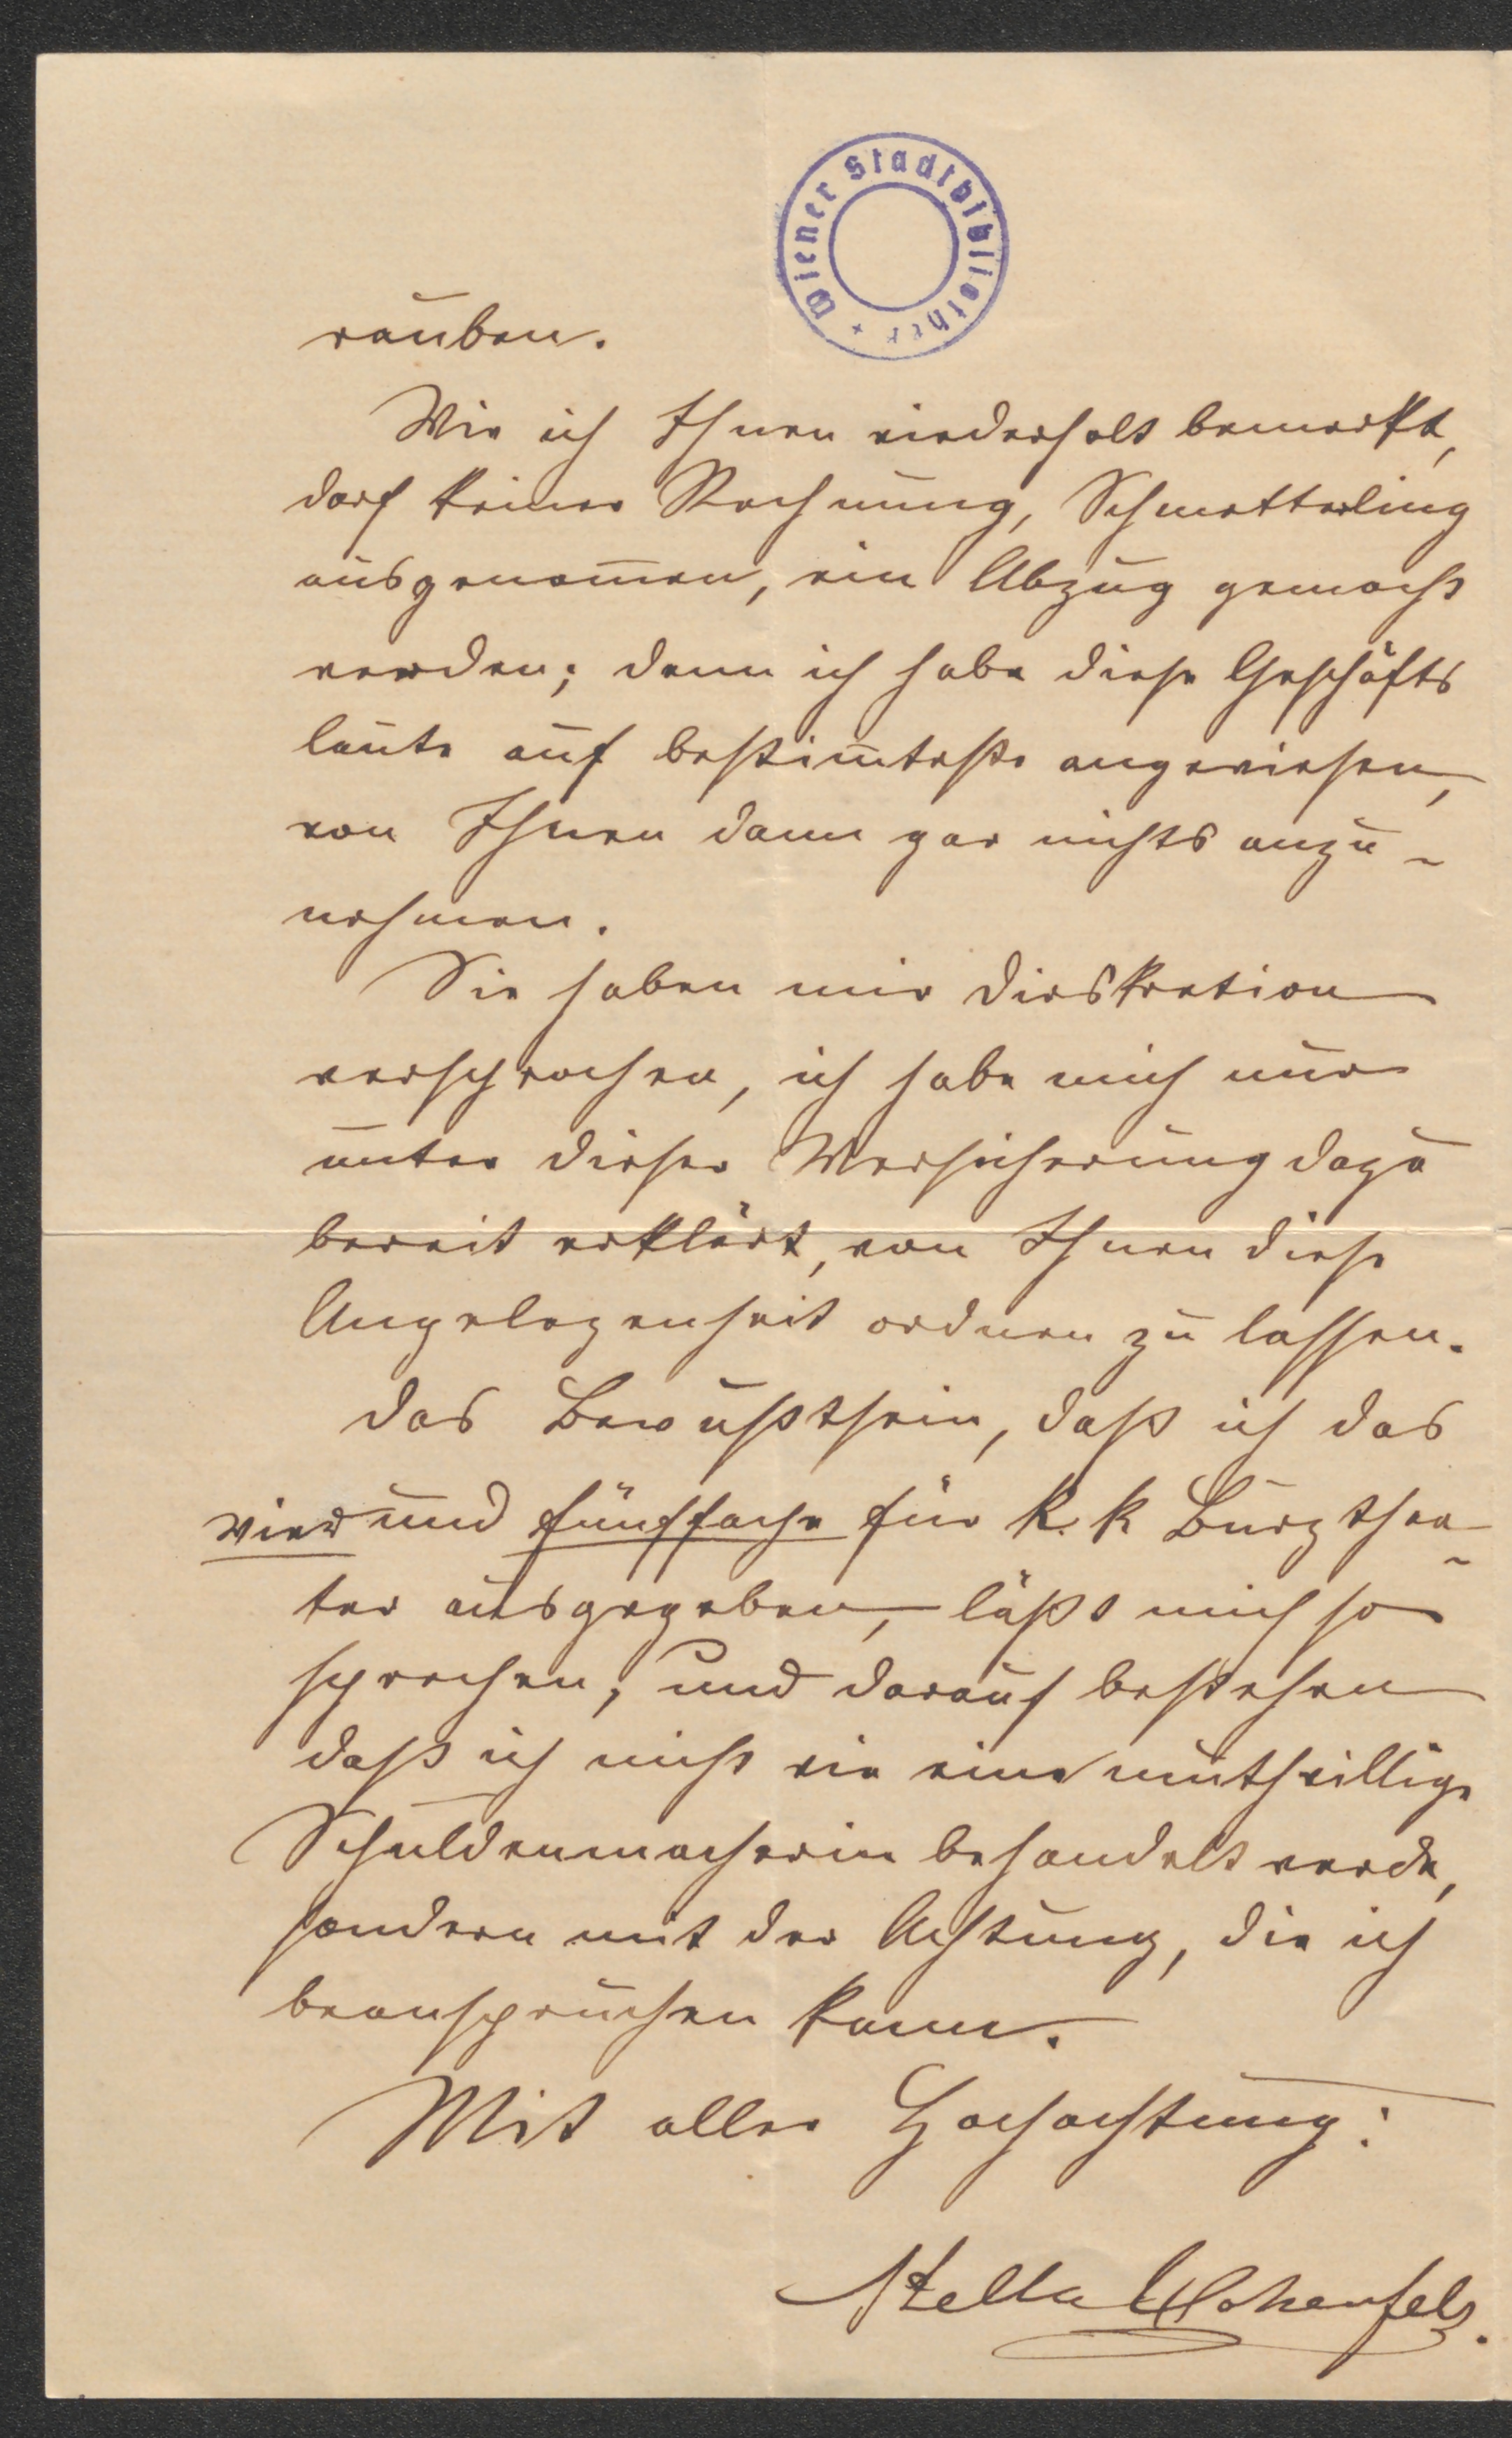 Wiener Stadtbibliothek
rauben.
Wie ich Ihnen wiederholt bemerkt,
darf keiner Rechnung, Schmetterling
ausgenom̅en, ein Abzug gemacht
werden; denn ich habe diese Geschäfts
leute auf bestim̅teste angewiesen,
von Ihnen dann gar nichts anzu-
nehmen.
Sie haben mir Dieskretion
versprochen, ich habe mich nur
unter dieser Versicherung dazu
bereit erklärt, von Ihnen diese
Angelegenheit ordnen zu lassen.
Das Bewußtsein, daß ich das
vier und fünffache für k. k Burgthea-
ter ausgegeben, läßt mich so
sprechen, und darauf bestehen
daß ich nicht wie eine muthwillige
Schuldenmacherin behandelt werde,
sondern mit der Achtung, die ich
beanspruchen kann.
Mit aller Hochachtung:
Stella Hohenfels.